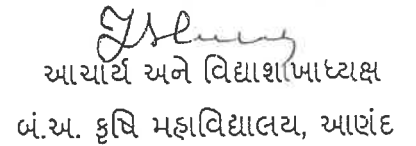 આચાર્ય અને વિદ્યાશાખાધ્યક્ષ
બં.અ. કૃષિ મહાવિદ્યાલય, આણંદ